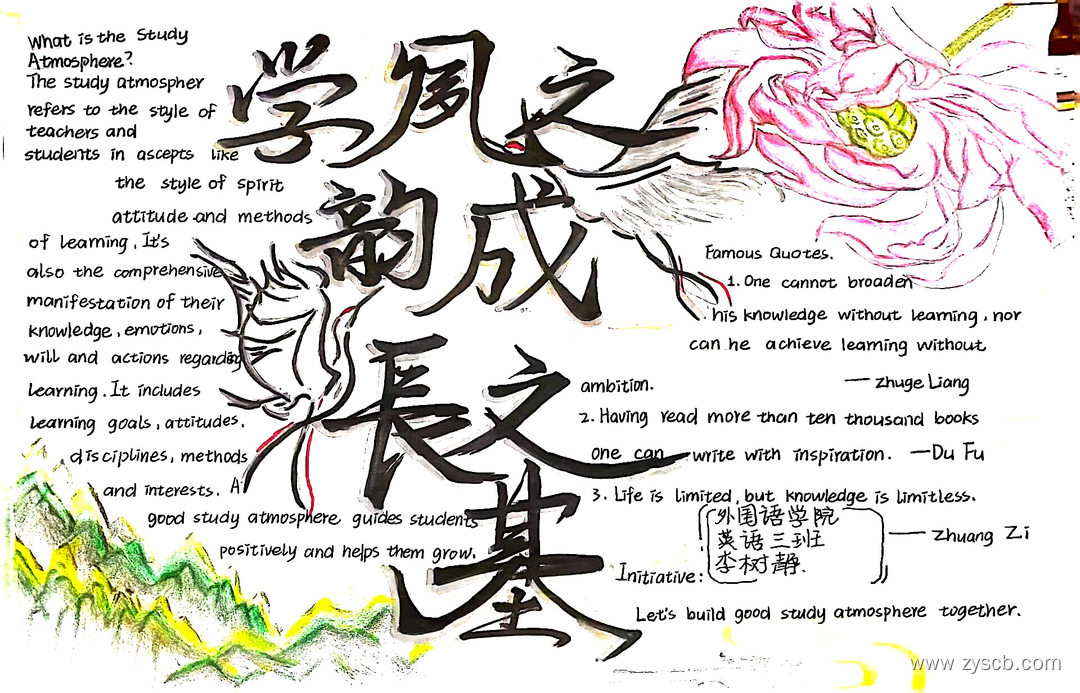 What is the Study
Atmosphere?
The study atmospher
refers to the style of
teachers and
students in ascepts like
the style of spirit
attitude and methods
of learning, It's
also the comprehensive
manifestation of their
knowledge, emotions,
will and actions regarding
learning. It includes
learning goals, attitudes,
disciplines, methods
and interests. A
good study atmosphere guides students
positively and helps them grow.
学风之
韵成
長之
基
Famous Quotes.
1. One cannot broaden
his knowledge without learning, nor
can he achieve learning without
ambition. — zhuge Liang
2. Having read more than ten thousand books
one can write with inspiration. — Du Fu
3. Life is limited, but knowledge is limitless.
— Zhuang Zi
外国语学院
英语三班
李树静.
Initiative:
Let's build good study atmosphere together.
www.zyscb.com